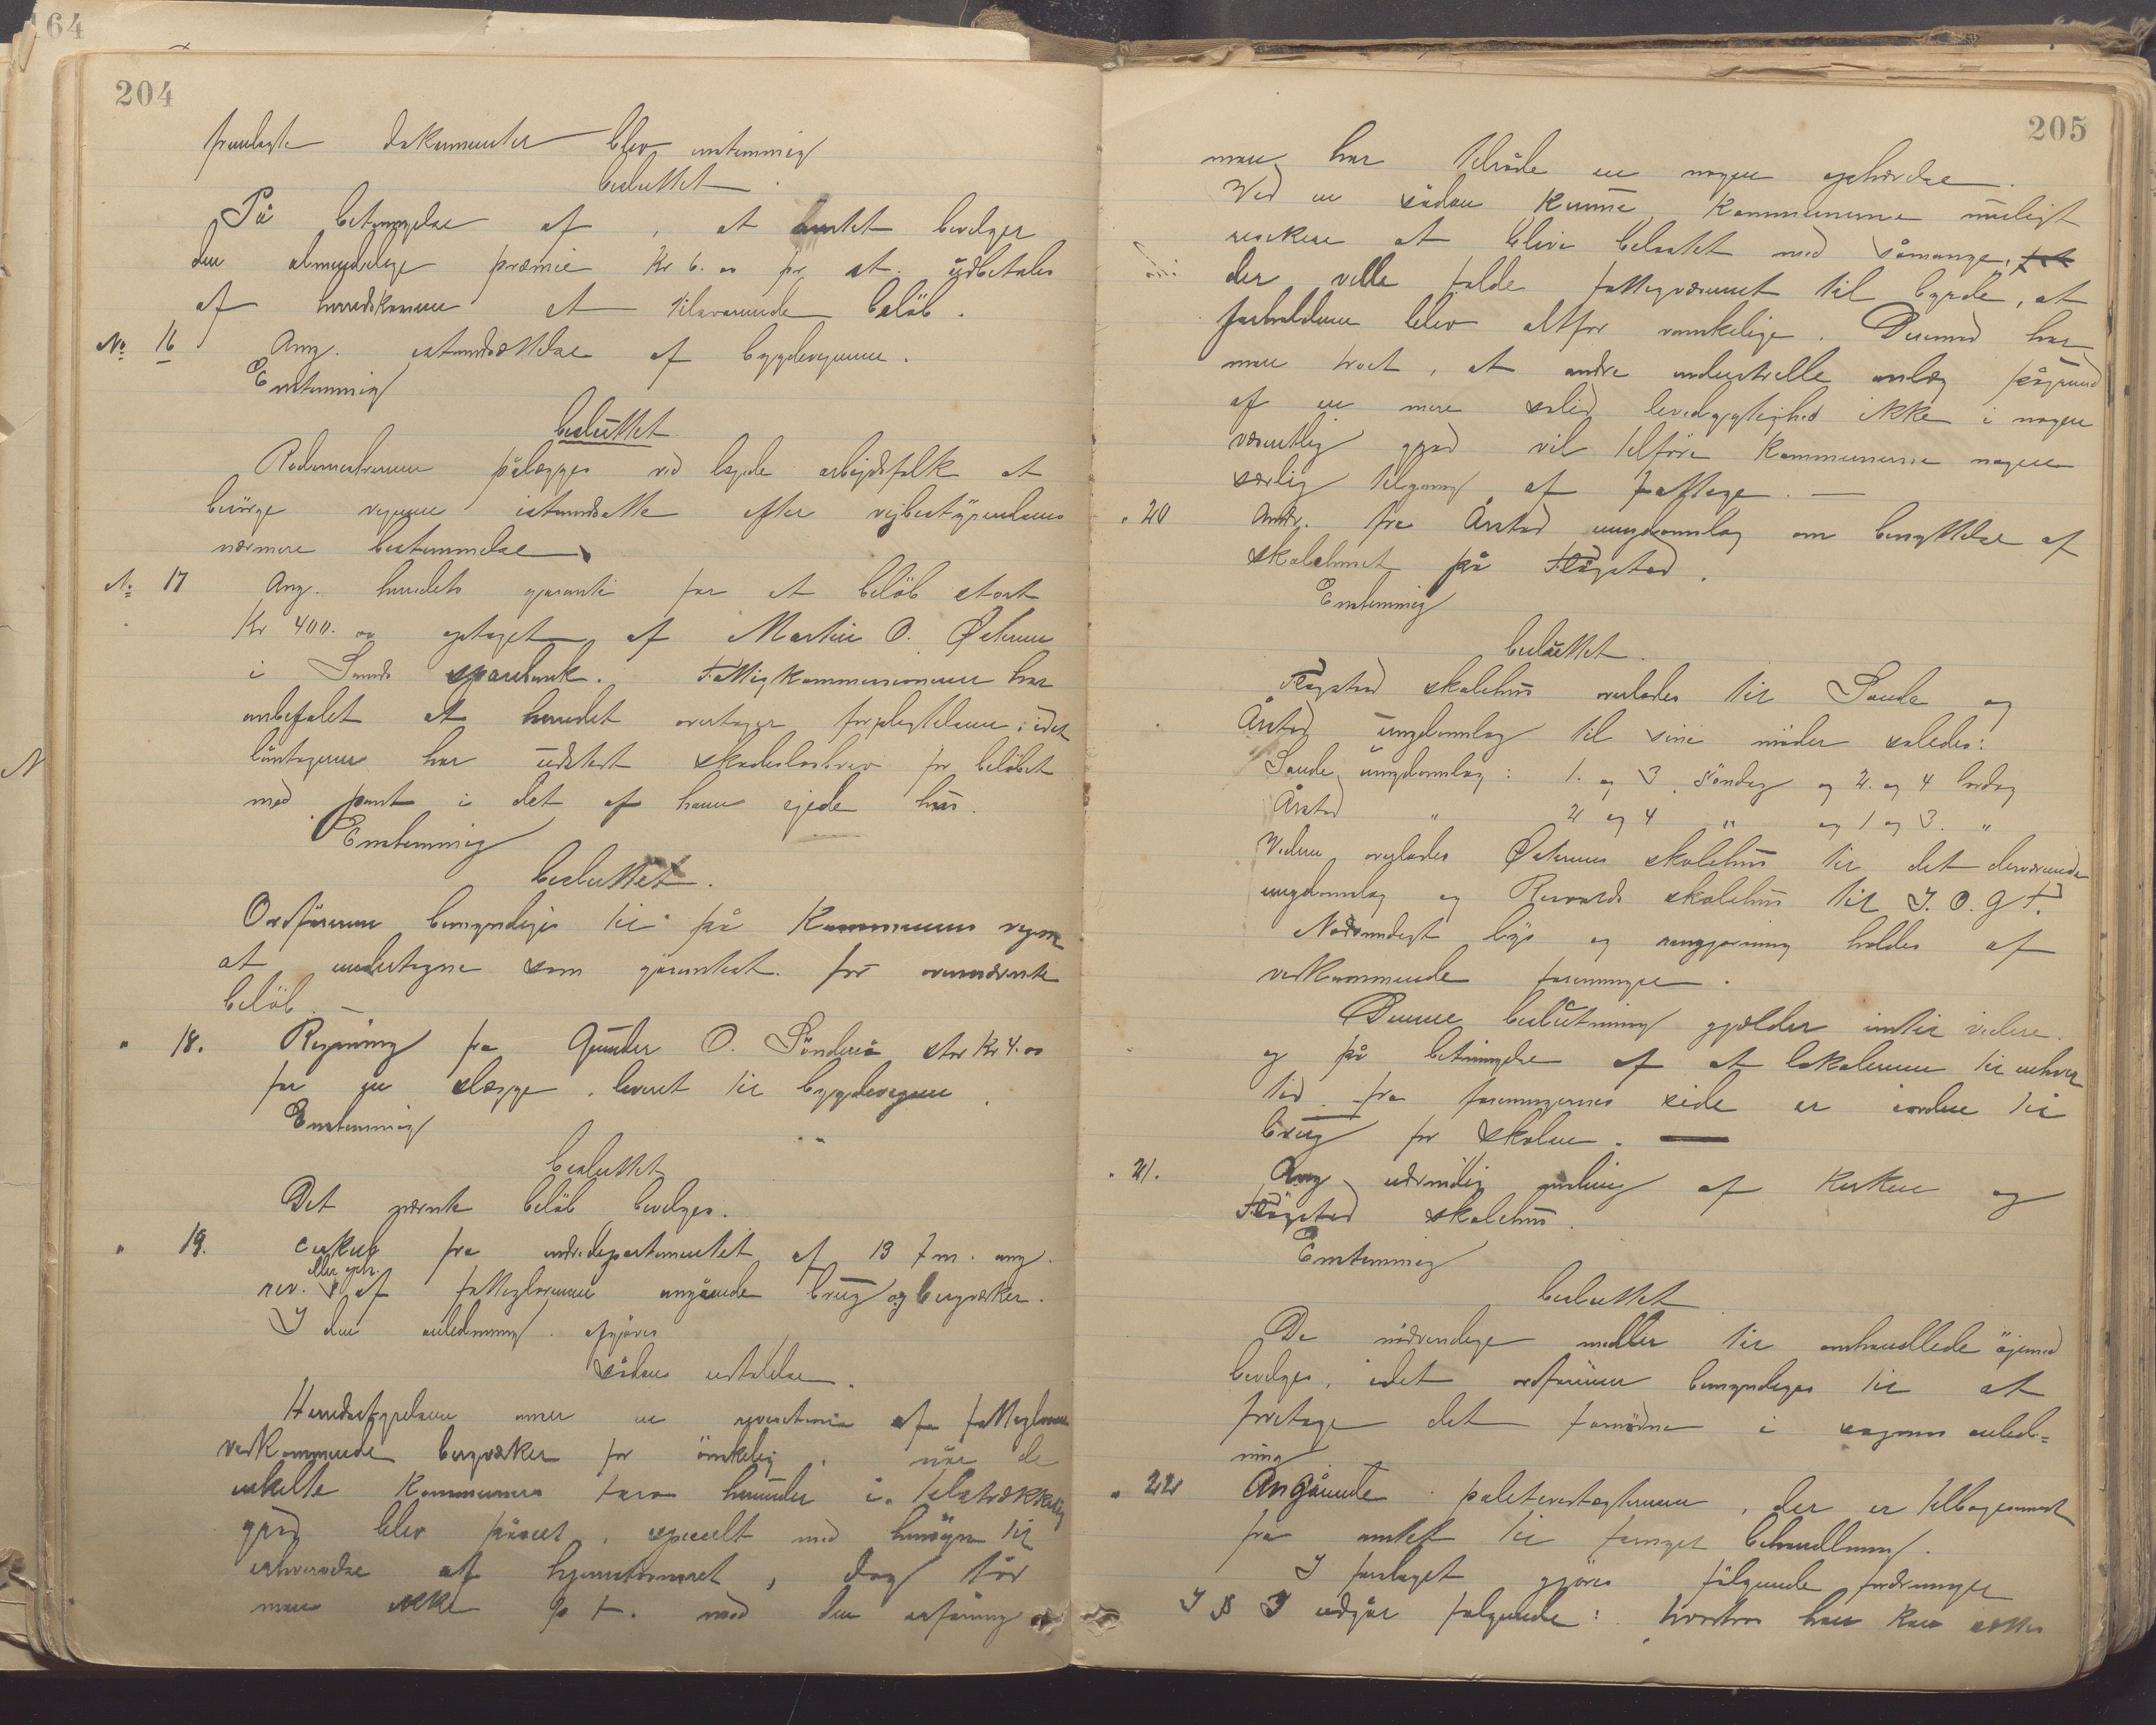 64
204
fremlagte dokumenter blev enstemmig
besluttet.
På betingelse af, at amtet bevilger
den almindelige præmie Kr 6.00 pr st. udbetales
af herredskassen et tilsvarende beløb.
No 16 Ang. istandsættelse af bygdeveiene.
Enstemmig
besluttet
Rodemestrene pålægges ved lejede arbejdsfolk at
besørge vejene istandsatte efter vejbestyrelsens
nærmere bestemmelse
No 17 Ang. herredets garanti for et beløb stort
Kr 400.00 optaget af Martin O. Østerem
i Lunds sparebank. Fattigkommissionen har
anbefalet at herredet overtager forpligtelsen, idet
låntageren har udstedt skadesløsbrev for beløbet
med pant i det af ham ejede hus.
Enstemmig
besluttet.
Ordføreren bemyndiges til på kommunens vegne
at undertegne som garantist for ovennævnte
beløb. —
" 18. Regning fra Gunder O. Sønderå stor Kr 4.00
for en slægge leveret til bygdeveiene.
Enstemmig
besluttet
Det nævnte beløb bevilges.
" 19. Cirkulær fra indredepartementet af 13 f.m. ang.
rev. eller oph. af fattiglovene angående brug og bergværker.
I den anledning afgives
sådan udtalelse.
Herredsstyrelsen anser en revision af fattiglovene
vedkommende bergværker for ønskelig, når de
enkelte kommuners tarv herunder i tilstrækkelig
grad blev påseet, specielt med hensyn til
erhvervelse af hjemstavnsret, dog tør
man ikke p.t. med den erfaring
205
man har tilråde en nogen ophævelse.
Ved en sådan kunne kommunerne muligt
risikere at blive belastet med såmange,
der ville falde fattigvæsenet til byrde, at
forholdene blev altfor vanskelige. Derimod har
man troet, at andre industrielle anlæg pågrund
af en mere solid levedygtighed ikke i nogen
væsentlig grad vil tilføre kommunerne nogen
særlig tilgang af fattige. —
" 20 Andr. fra Årstad ungdomslag om benyttelse af
skolehuset på Fløgstad.
Enstemmig
besluttet.
Fløgstad skolehus overlades til Saude og
Årstad ungdomslag til sine møder saledes:
Saude ungdomslag: 1. og 3 søndag og 2. og 4 lørdag
Årstad " 2 og 4 " og 1 og 3. "
Videre overlades Østerems skolehus til det derværende
ungdomslag og skolehus til I. O. G. T.
Nødvendigt lys og rengjøring holdes af
vedkommende foreninger.
Denne beslutning gjælder indtil videre
og på betingelse af at lokalerne til enhver
tid fra foreningernes side er iorden til
brug for skolen. —
" 21. Ang. udvendig maling af kirken og
Fløgstad skolehus.
Enstemmig
besluttet
De nødvendige midler til omhandlede øjemed
bevilges, idet ordføreren bemyndiges til at
foretage det fornødne i sagens anled-
ning
" 22 Angående politivedtægterne, der er tilbagesendt
fra amtet til fornyet behandling.
I forslaget gjøres følgende forandringer
I § 3 udgår følgende: hvorhos han kan sættes